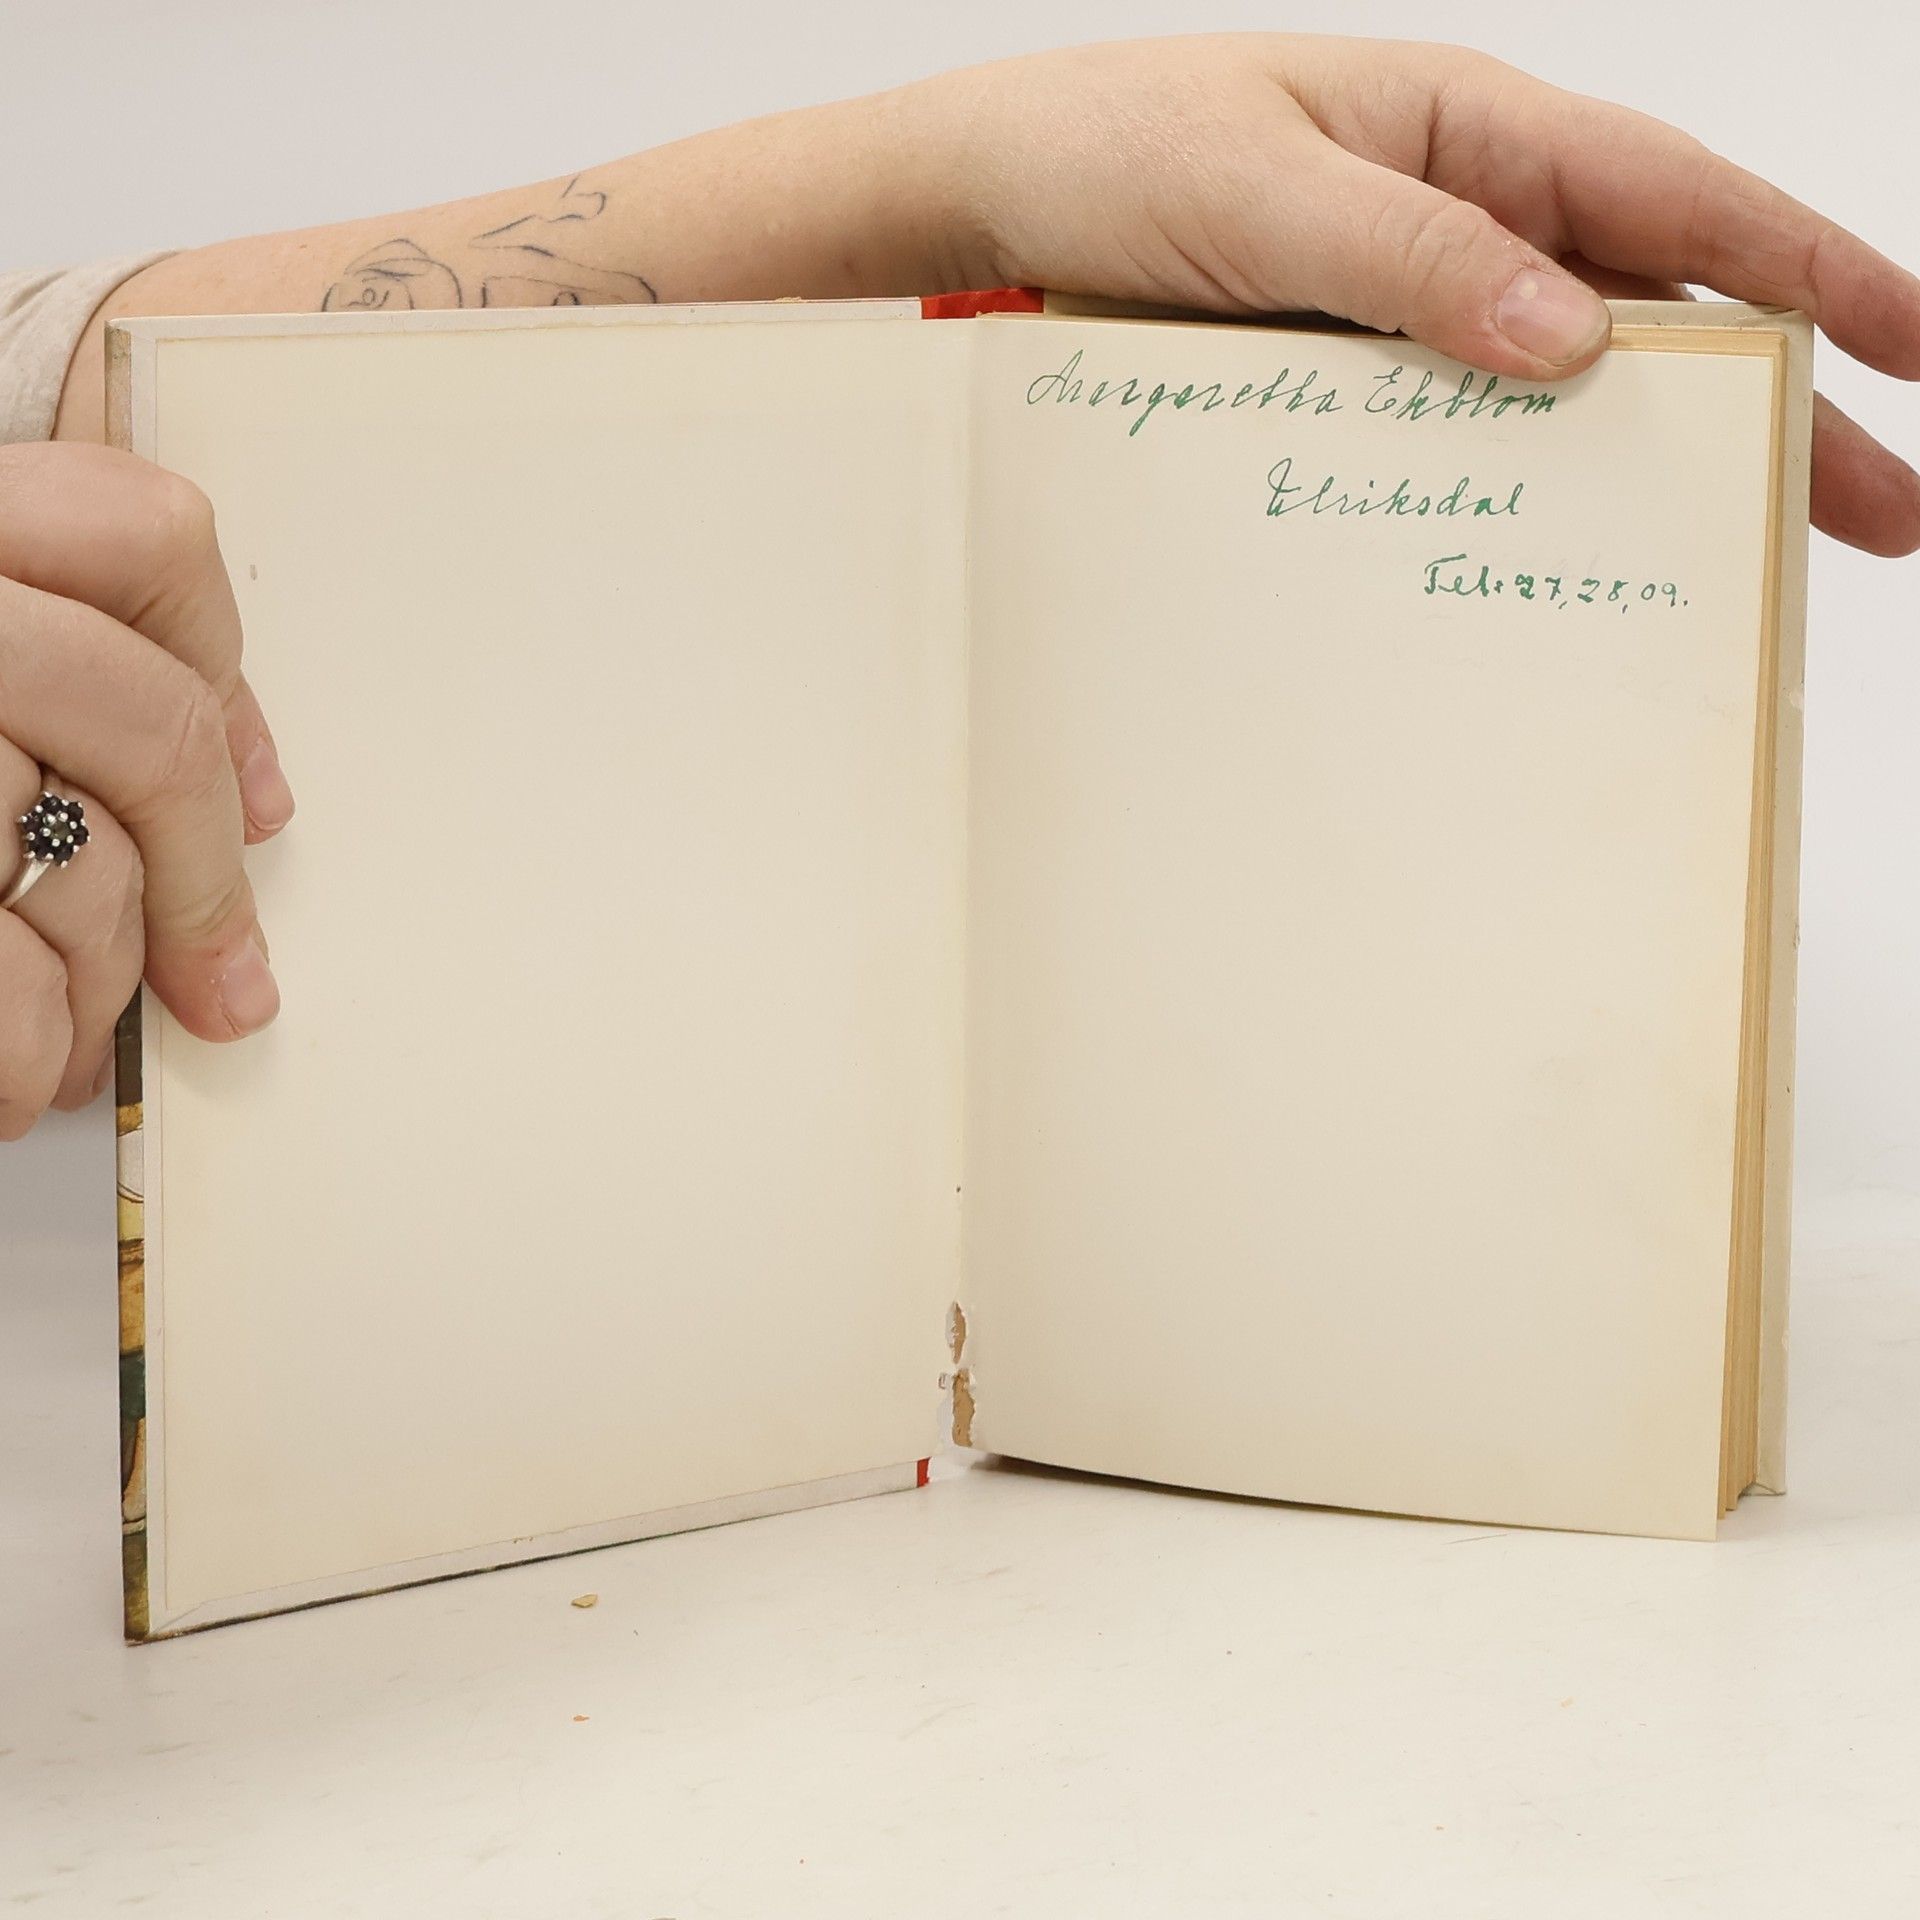 Margaretha Ekblom
Ulriksdal
Tel: 27,28,09.